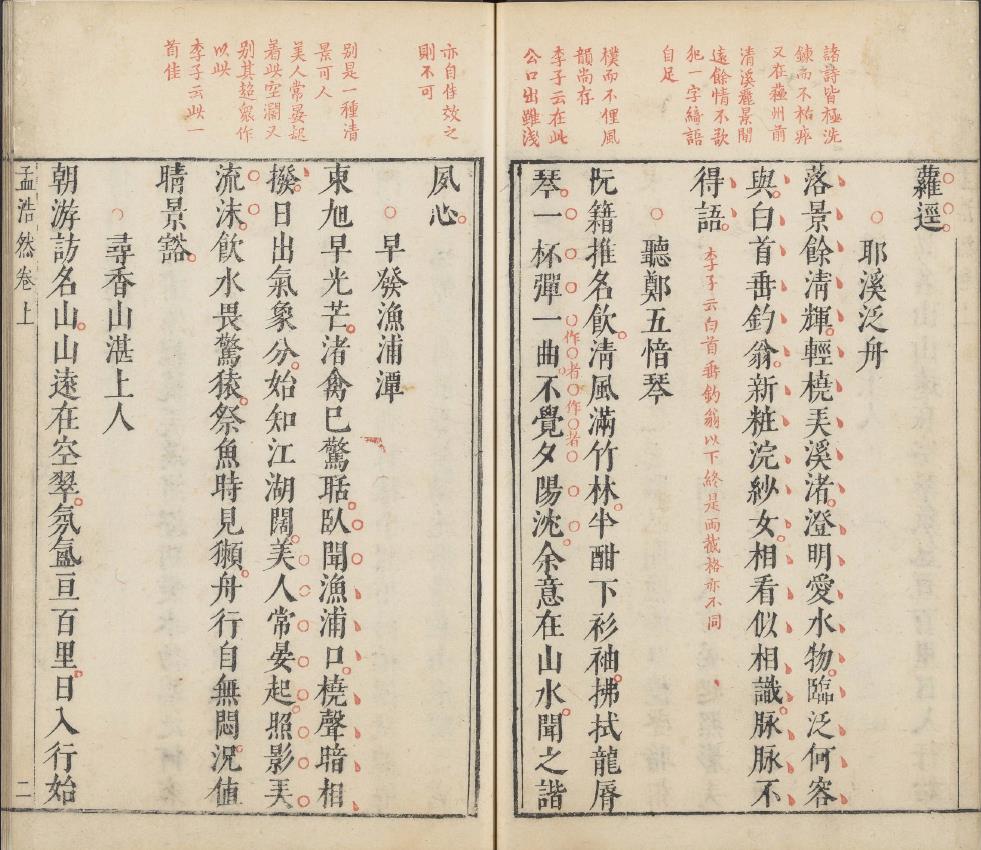 諸詩皆極洗
鍊而不枯瘁
又在蘇州前
清溪麗景閒
遠餘情不欲
犯一字綺語
自足
樸而不俚風
韻尚存
李子云在此
公口出雖淺
蘿逕
耶溪泛舟
落景餘淸輝輕橈弄溪渚澄明愛水物臨泛何容
與白首垂釣翁新粧浣紗女相看似相識脉脉不
得語
李子云白首垂釣翁以下終是两截格亦不同
聽鄭五愔琴
阮籍推名飮淸風滿竹林半酣下衫袖拂拭龍脣
琴一杯彈一曲不覺夕陽沈余意在山水聞之諧
○作○者○作○者○
亦自佳效之
則不可
别是一種清
景可人
美人常晏起
着此空濶又
别其超衆作
以此
李子云此一
首佳
夙心
早發漁浦潭
東旭早光芒渚禽巳驚聒臥聞漁浦口橈聲暗相
撥日出氣象分始知江湖闊美人常晏起照影弄
流沫飮水畏驚猿祭魚時見獺舟行自無悶況値
晴景豁
尋香山湛上人
朝游訪名山山遠在空翠氛氳亘百里日入行始
孟浩然卷上
二